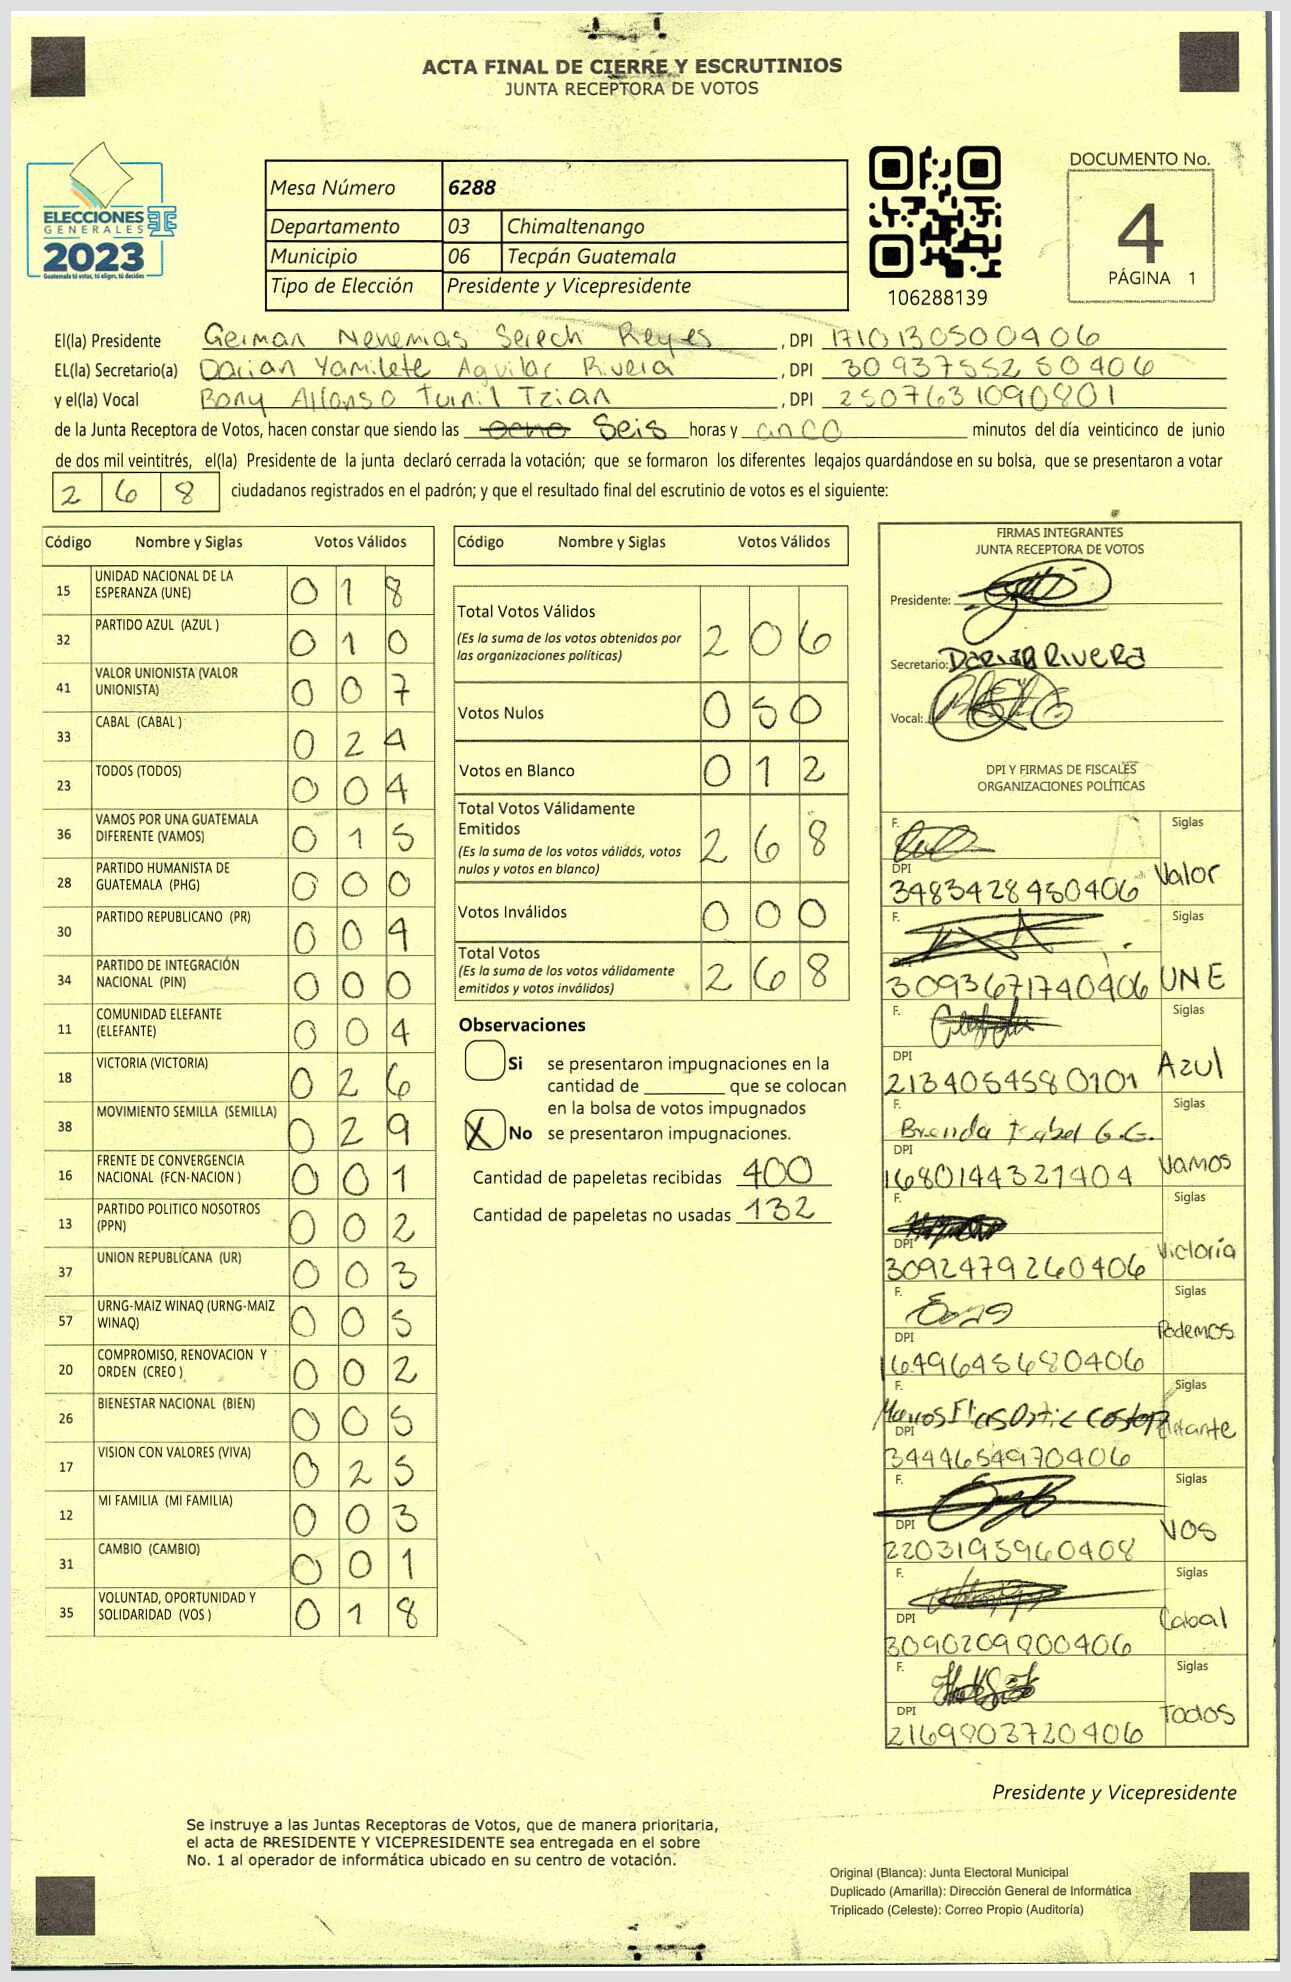 ACTA FINAL DE CIERRE Y ESCRUTINIOS
JUNTA RECEPTORA DE VOTOS
ELECCIONES
GENERALES
2023
Guatemala tú votas, tú eliges, tú decides
Mesa Número 6288
Departamento 03 Chimaltenango
Municipio 06 Tecpán Guatemala
Tipo de Elección Presidente y Vicepresidente
106288139
DOCUMENTO No.
4
PÁGINA 1
El(la) Presidente German Nehemias Serech Reyes, DPI 1710130500406
EL(la) Secretario(a) Darian Yamilete Aguilar Rivera, DPI 3093755250406
y el(la) Vocal Bony Alfonso Turnil Tzian, DPI 2507631090801
de la Junta Receptora de Votos, hacen constar que siendo las ocho Seis horas y cinco minutos del día veinticinco de junio
de dos mil veintitrés, el(la) Presidente de la junta declaró cerrada la votación; que se formaron los diferentes legajos guardándose en su bolsa, que se presentaron a votar
268 ciudadanos registrados en el padrón; y que el resultado final del escrutinio de votos es el siguiente:
Código Nombre y Siglas Votos Válidos
15 UNIDAD NACIONAL DE LA ESPERANZA (UNE) 018
32 PARTIDO AZUL (AZUL ) 010
41 VALOR UNIONISTA (VALOR UNIONISTA) 007
33 CABAL (CABAL ) 024
23 TODOS (TODOS) 004
36 VAMOS POR UNA GUATEMALA DIFERENTE (VAMOS) 015
28 PARTIDO HUMANISTA DE GUATEMALA (PHG) 000
30 PARTIDO REPUBLICANO (PR) 004
34 PARTIDO DE INTEGRACIÓN NACIONAL (PIN) 000
11 COMUNIDAD ELEFANTE (ELEFANTE) 004
18 VICTORIA (VICTORIA) 026
38 MOVIMIENTO SEMILLA (SEMILLA) 029
16 FRENTE DE CONVERGENCIA NACIONAL (FCN-NACION ) 001
13 PARTIDO POLITICO NOSOTROS (PPN) 002
37 UNION REPUBLICANA (UR) 003
57 URNG-MAIZ WINAQ (URNG-MAIZ WINAQ) 005
20 COMPROMISO, RENOVACION Y ORDEN (CREO ) 002
26 BIENESTAR NACIONAL (BIEN) 005
17 VISION CON VALORES (VIVA) 025
12 MI FAMILIA (MI FAMILIA) 003
31 CAMBIO (CAMBIO) 001
35 VOLUNTAD, OPORTUNIDAD Y SOLIDARIDAD (VOS ) 018
Código Nombre y Siglas Votos Válidos
Total Votos Válidos 206
(Es la suma de los votos obtenidos por
las organizaciones políticas)
Votos Nulos 050
Votos en Blanco 012
Total Votos Válidamente
Emitidos 268
(Es la suma de los votos válidos, votos
nulos y votos en blanco)
Votos Inválidos 000
Total Votos 268
(Es la suma de los votos válidamente
emitidos y votos inválidos)
Observaciones
Si se presentaron impugnaciones en la
cantidad de ________ que se colocan
en la bolsa de votos impugnados
X No se presentaron impugnaciones.
Cantidad de papeletas recibidas 400
Cantidad de papeletas no usadas 132
FIRMAS INTEGRANTES
JUNTA RECEPTORA DE VOTOS
Presidente:
Secretario: Darian Rivera
Vocal:
DPI Y FIRMAS DE FISCALES
ORGANIZACIONES POLÍTICAS
F. Siglas
DPI 3483428450406 Valor
F. Siglas
DPI 3093671740406 UNE
F. Siglas
DPI 2134054580101 Azul
F. Brenda Isabel G.G. Siglas
DPI 1680144321404 Vamos
F. Siglas
DPI 3092479260406 Victoria
F. Siglas
DPI 1649645680406 Podemos
F. Siglas
DPI 3444654970406 Elefante
F. Siglas
DPI 2203195960408 VOS
F. Siglas
DPI 3090209800406 Cabal
F. Siglas
DPI 2169803720406 Todos
Presidente y Vicepresidente
Se instruye a las Juntas Receptoras de Votos, que de manera prioritaria,
el acta de PRESIDENTE Y VICEPRESIDENTE sea entregada en el sobre
No. 1 al operador de informática ubicado en su centro de votación.
Original (Blanca): Junta Electoral Municipal
Duplicado (Amarilla): Dirección General de Informática
Triplicado (Celeste): Correo Propio (Auditoría)